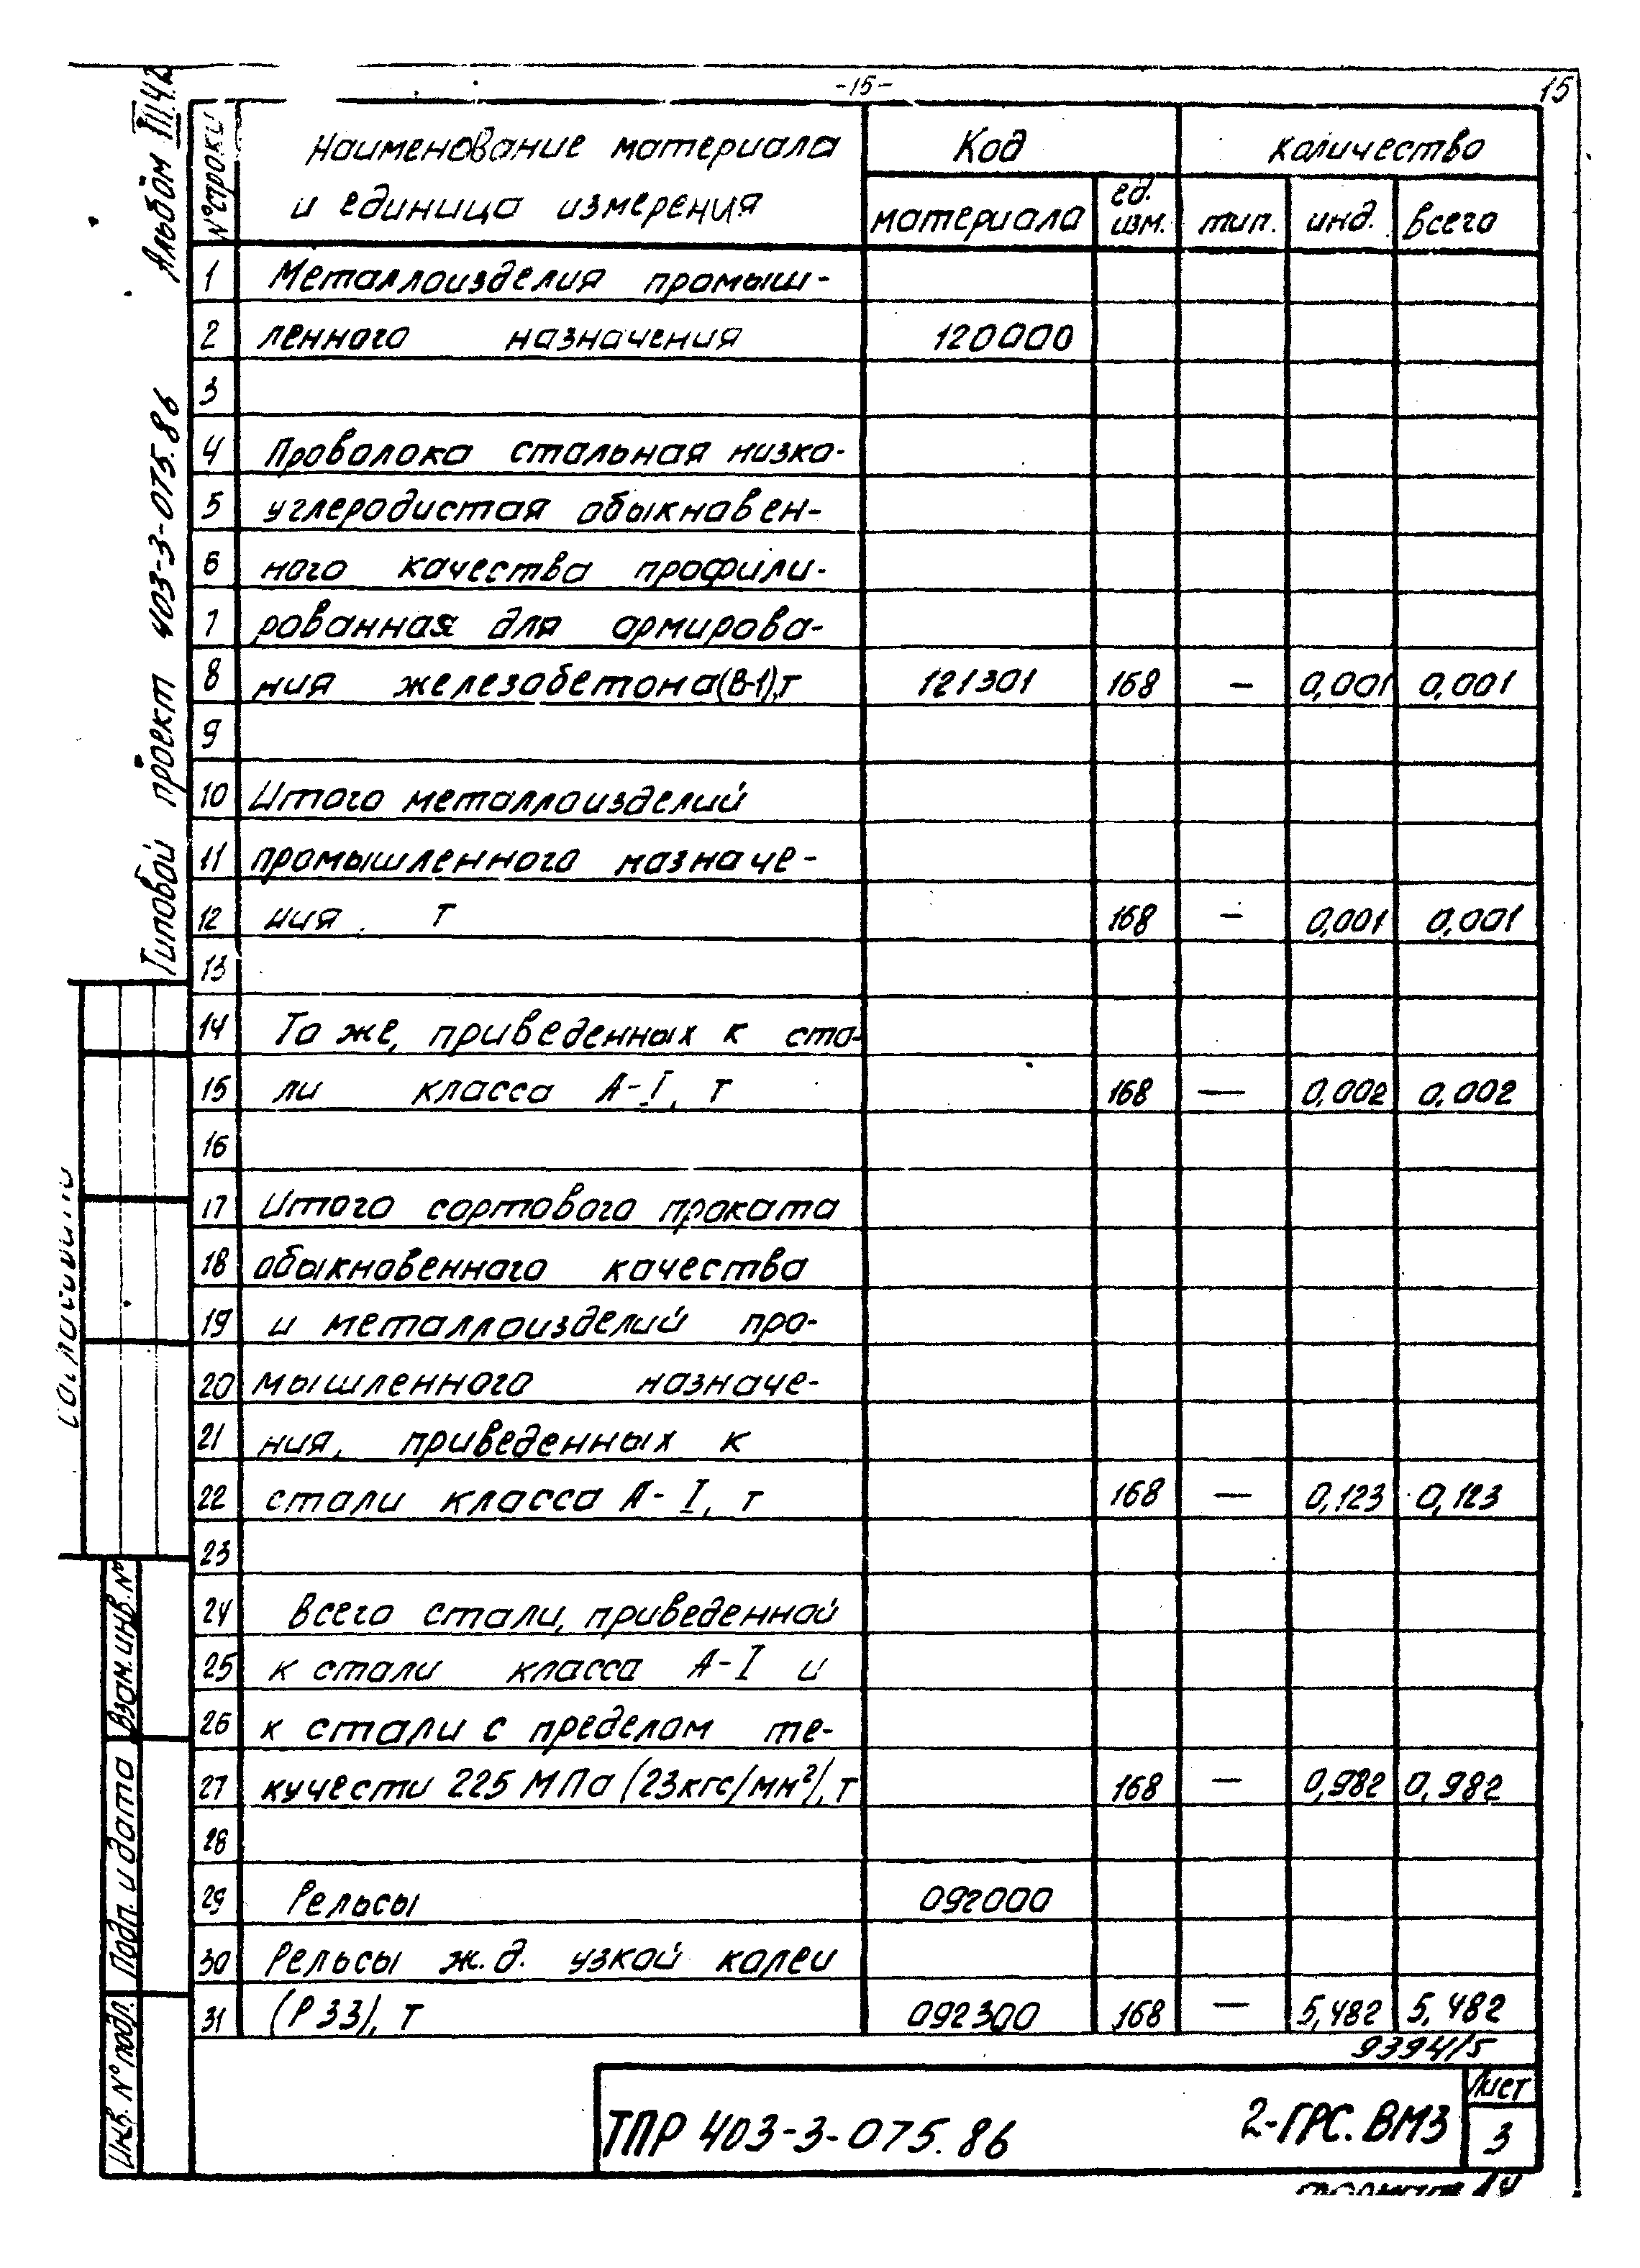 -15-
15
Альбом III.4.2
Типовой проект 403-3-075.86
№ строки
Наименование материала
и единица измерения
Код
количество
материала
ед.
изм.
тип.
инд.
всего
1 Металлоизделия промыш-
2 ленного назначения 120000
3
4 Проволока стальная низко-
5 углеродистая обыкнавен-
6 ного качества профили-
7 рованная для армирова-
8 ния железобетона(В-1),т 121301 168 — 0,001 0,001
9
10 Итого металлоизделий
11 промышленного назначе-
12 ния т 168 — 0,001 0,001
13
14 То же, приведенных к ста-
15 ли класса А-I, т 168 — 0,002 0,002
16
17 Итого сортового проката
18 обыкновенного качества
19 и металлоизделий про-
20 мышленного назначе-
21 ния, приведенных к
22 стали класса А-I, т 168 — 0,123 0,123
23
24 Всего стали, приведенной
25 к стали класса А-I и
26 к стали с пределом те-
27 кучести 225 МПа (23кгс/мм²), т 168 — 0,982 0,982
28
29 Рельсы 092000
30 Рельсы ж.д. узкой колеи
31 (Р33), т 092300 168 — 5,482 5,482
9394/5
Взам. инв. №
Подп. и дата
Инв. № подл.
ТПР 403-3-075.86
2-ГРС.ВМ3
Лист
3